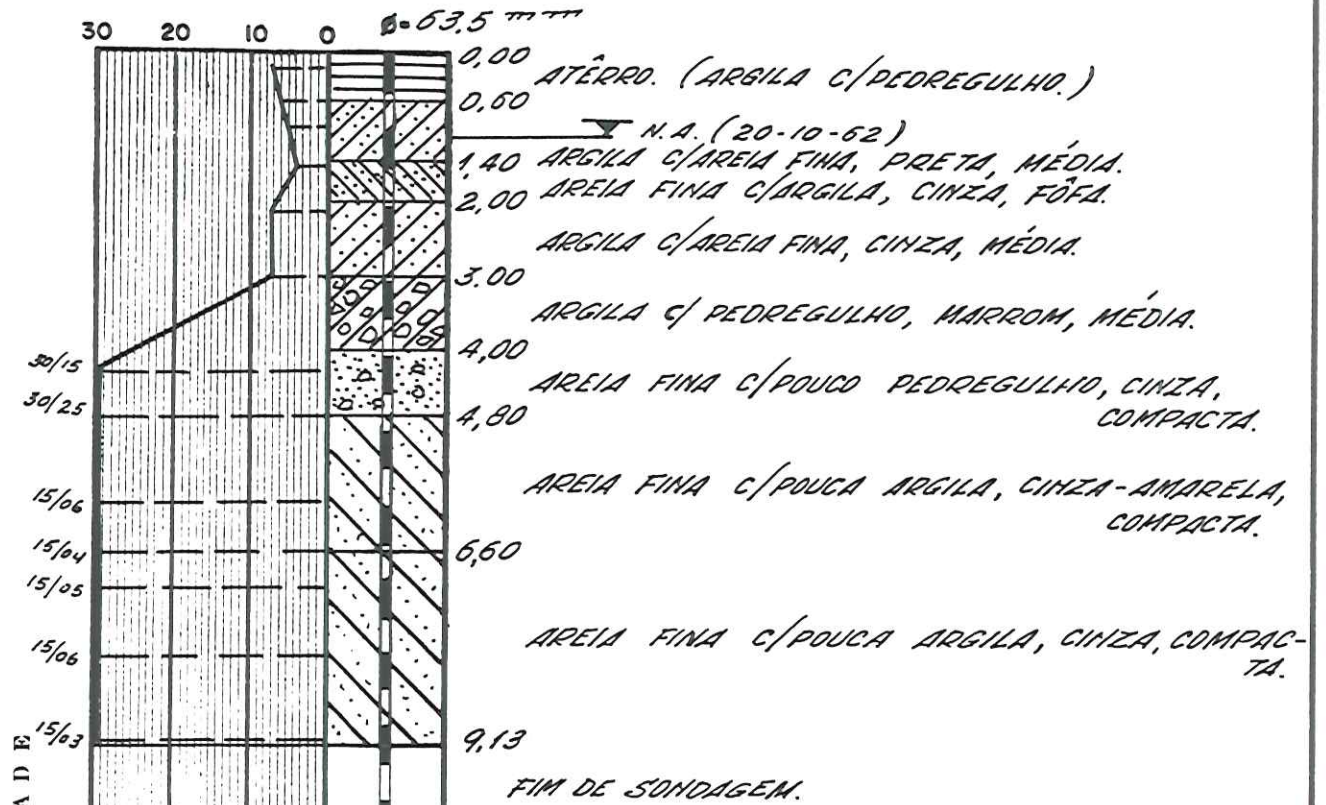 30 20 10 0 Ø=63,5 mm
0,00
ATÊRRO. (ARGILA C/PEDREGULHO.)
0,60
N.A. (20-10-62)
1,40 ARGILA C/AREIA FINA, PRETA, MÉDIA.
2,00 AREIA FINA C/ARGILA, CINZA, FÔFA.
ARGILA C/AREIA FINA, CINZA, MÉDIA.
3.00
ARGILA C/ PEDREGULHO, MARROM, MÉDIA.
4,00
30/15
AREIA FINA C/POUCO PEDREGULHO, CINZA,
30/25
COMPACTA.
4,80
AREIA FINA C/POUCA ARGILA, CINZA-AMARELA,
15/06
COMPACTA.
15/04
6,60
15/05
AREIA FINA C/POUCA ARGILA, CINZA, COMPAC-
15/06
TA.
15/03
9,13
FIM DE SONDAGEM.
ADE